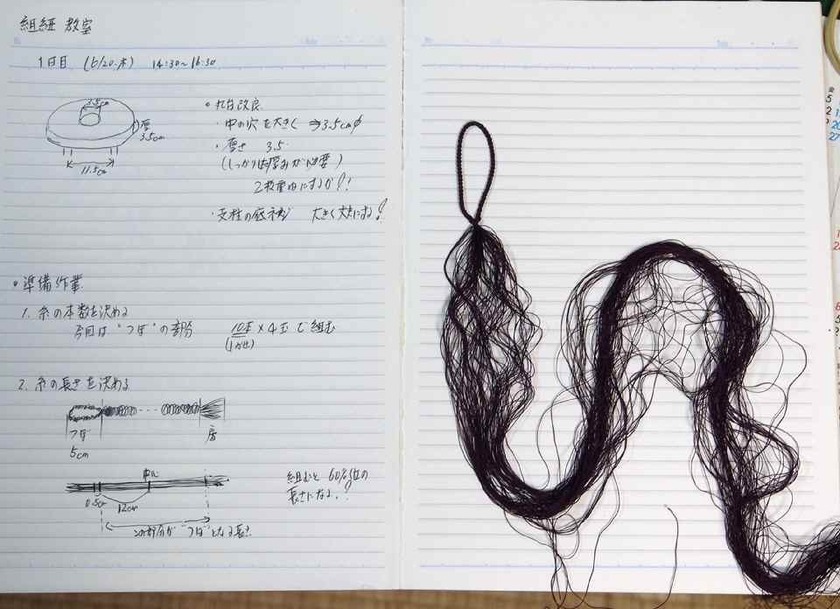 組紐 教室
1日目 (6/20.木) 14:30~16:30
3.5cm
厚
3.5cm
11.5cm
• 丸台改良
・中の穴を大きく ⇒ 3.5cmφ
・厚さ 3.5
(しっかりは厚みが必要)
2枚重ねにするか?!
・支柱の底補強 大きく丈夫にする!
• 準備作業
1. 糸の本数を決める
今回は "つぼ" の部分 10玉×4玉で組む
2. 糸の長さを決める
つぼ
房
5cm
中心
0.5cm
12cm
この部分が "つぼ" となる長さ
組むと 60%位の
長さになる!